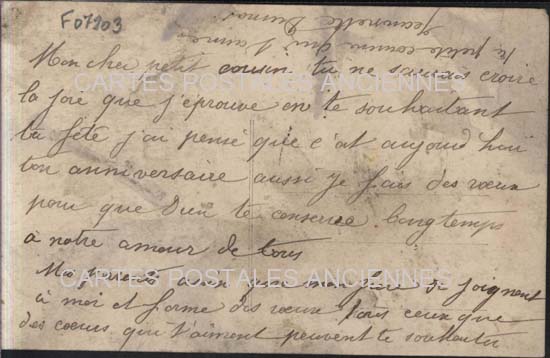 F07903
Mon cher petit cousin tu ne saurais croire
la joie que j'éprouve en te souhaitant
ta fête j'ai pensé que c'est aujourd'hui
ton anniversaire aussi je fais des vœux
pour que Dieu te conserve longtemps
à notre amour de tous
Mes parents ainsi que mon frère se joignent
à moi et forme des vœux tous ceux que
des cœurs qui t'aiment peuvent te souhaiter
ta petite cousine qui t'aime
Jeannette
CARTES POSTALES ANCIENNES
CARTES POSTALES ANCIENNES